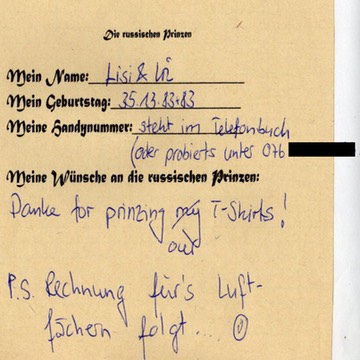 Die russischen Prinzen
Mein Name: Lisi &
Mein Geburtstag: 35.13.83+83
Meine Handynummer: steht im Telefonbuch
(oder probierts unter 076
Meine Wünsche an die russischen Prinzen:
Danke for prinzing my T-Shirts!
our
P.S. Rechnung für's Luft-
fächern folgt....